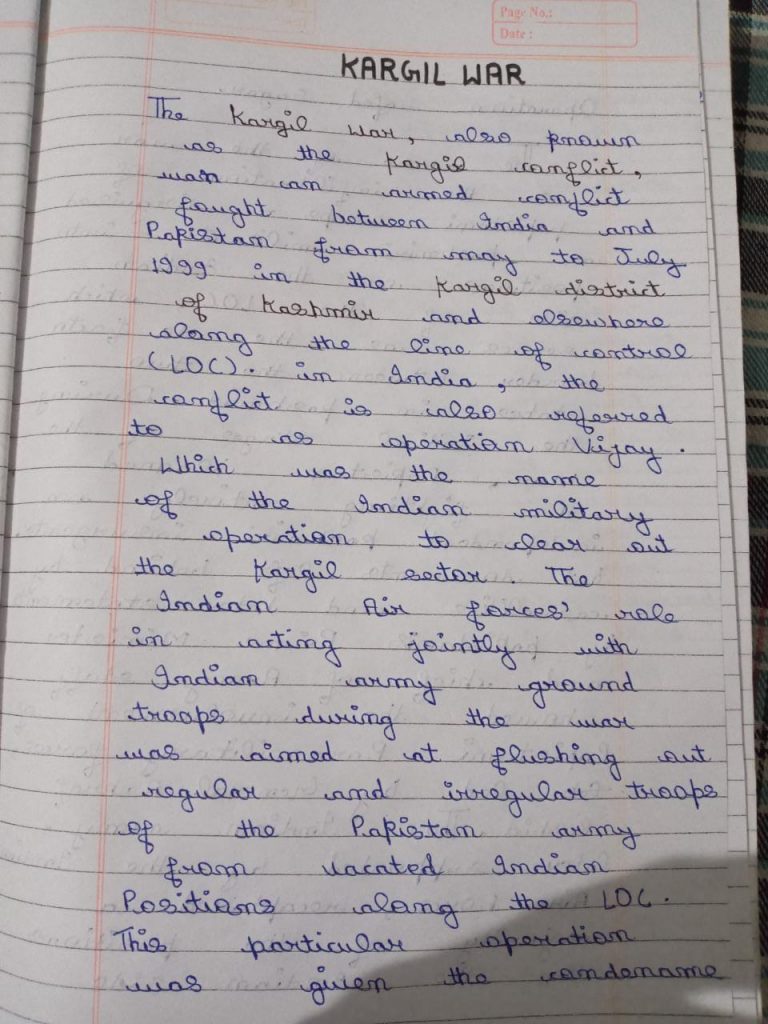 Page No.:
Date :
KARGIL WAR
The Kargil War, also known
as the Kargil conflict,
was an armed conflict
fought between India and
Pakistan from may to July
1999 in the Kargil district
of Kashmir and elsewhere
along the line of control
(LOC). in India, the
conflict is also referred
to as operation Vijay.
Which was the name
of the Indian military
operation to clear out
the Kargil sector. The
Indian Air forces' role
in acting jointly with
Indian army ground
troops during the war
was aimed at flushing out
regular and irregular troops
of the Pakistan army
from vacated Indian
Positions along the LOC.
This particular operation
was given the condename